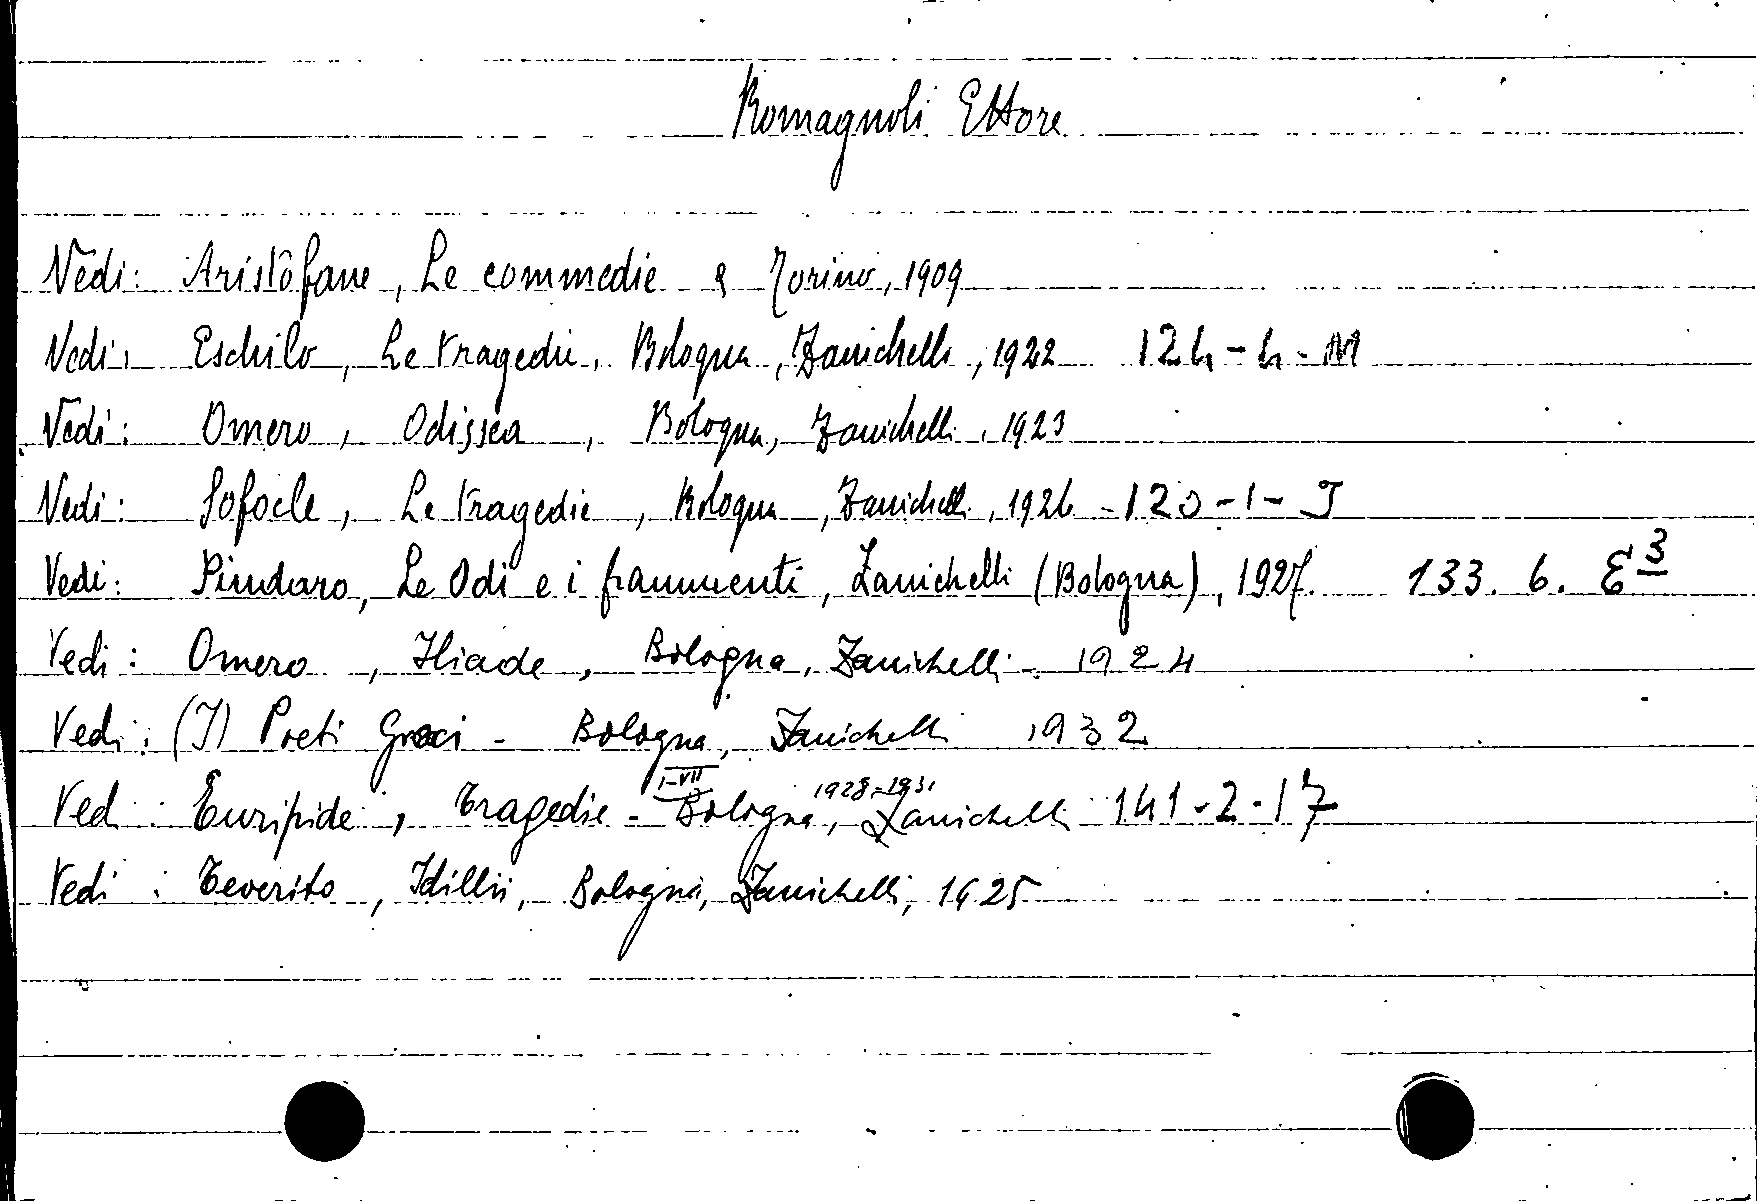 Romagnoli Ettore
Vedi: Aristofane, Le commedie Torino, 1909
Vedi: Eschilo, Le tragedie, Bologna, Zanichelli, 1922 124-4-M
Vedi: Omero, Odissea, Bologna, Zanichelli, 1923
Vedi: Sofocle, Le tragedie, Bologna, Zanichelli, 1926 - 120-1-J
Vedi: Pindaro, Le Odi e i frammenti, Zanichelli (Bologna), 1927. 133. 6. E 3
Vedi: Omero, Iliade, Bologna, Zanichelli. 1924
Vedi: (I) Poeti Greci - Bologna, Zanichelli 1932
I-VII 1928-1931
Vedi: Euripide, Tragedie - Bologna, Zanichelli 141-2-17
Vedi: Teocrito, Idillii, Bologna, Zanichelli, 1925